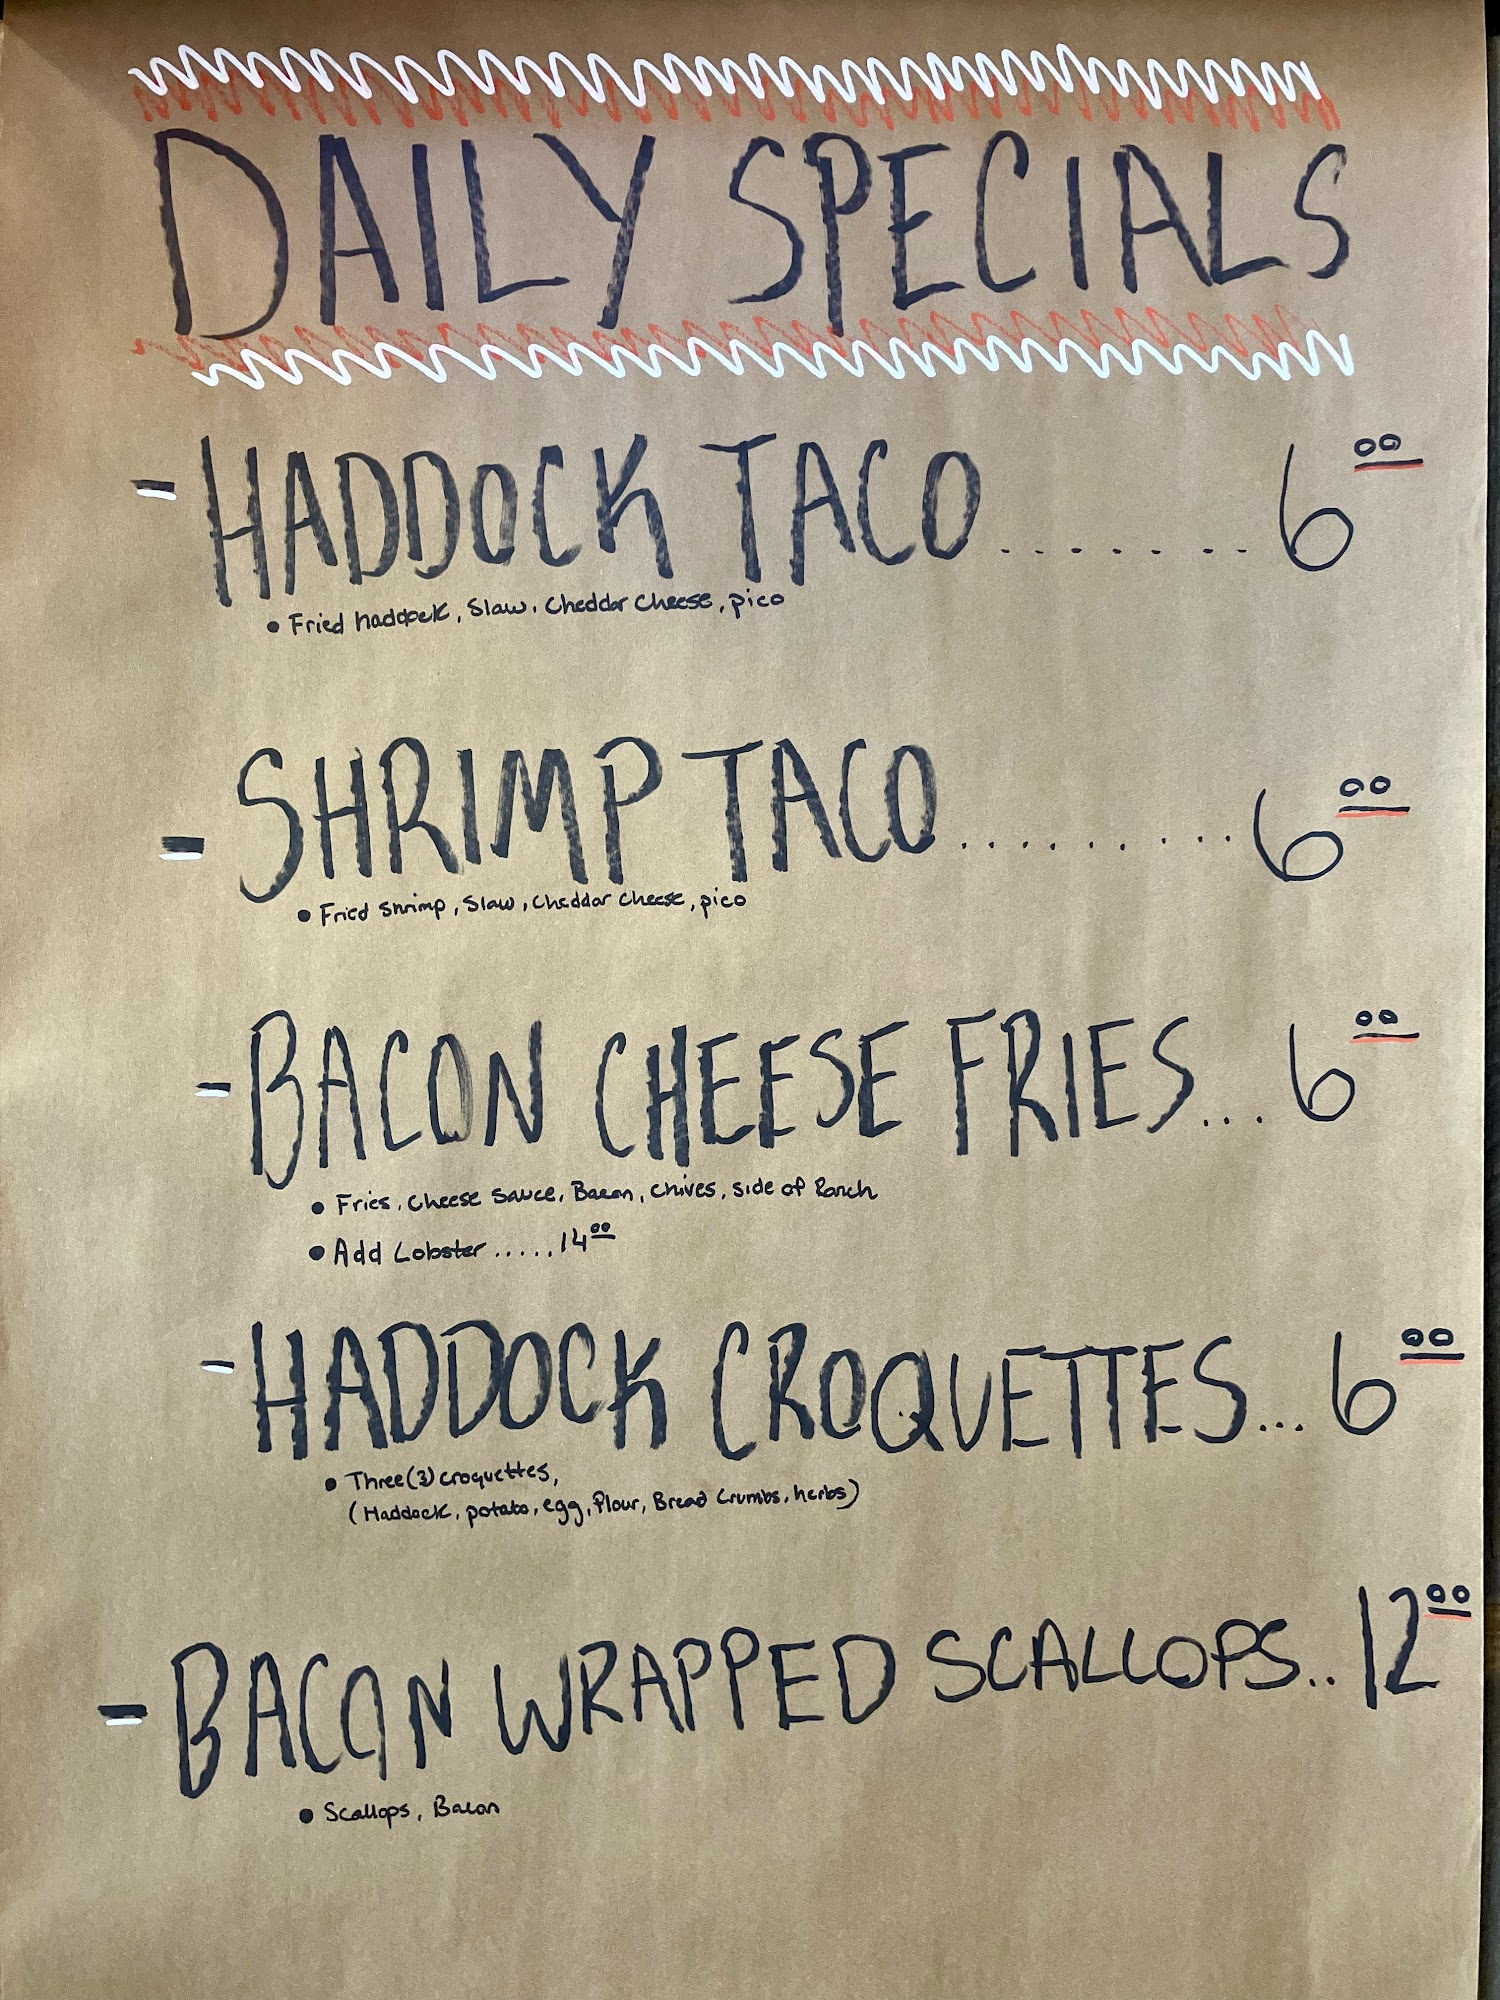 DAILY SPECIALS
- HADDOCK TACO........6 00
• Fried haddock, Slaw, Cheddar Cheese, pico
- SHRIMP TACO..........6 00
• Fried Shrimp, Slaw, Cheddar Cheese, pico
- BACON CHEESE FRIES...6 00
• Fries, Cheese Sauce, Bacon, Chives, Side of Ranch
• Add Lobster.....14 00
- HADDOCK CROQUETTES...6 00
• Three (3) croquettes,
(Haddock, potato, egg, Flour, Bread Crumbs, herbs)
- BACON WRAPPED SCALLOPS..12 00
• Scallops, Bacon